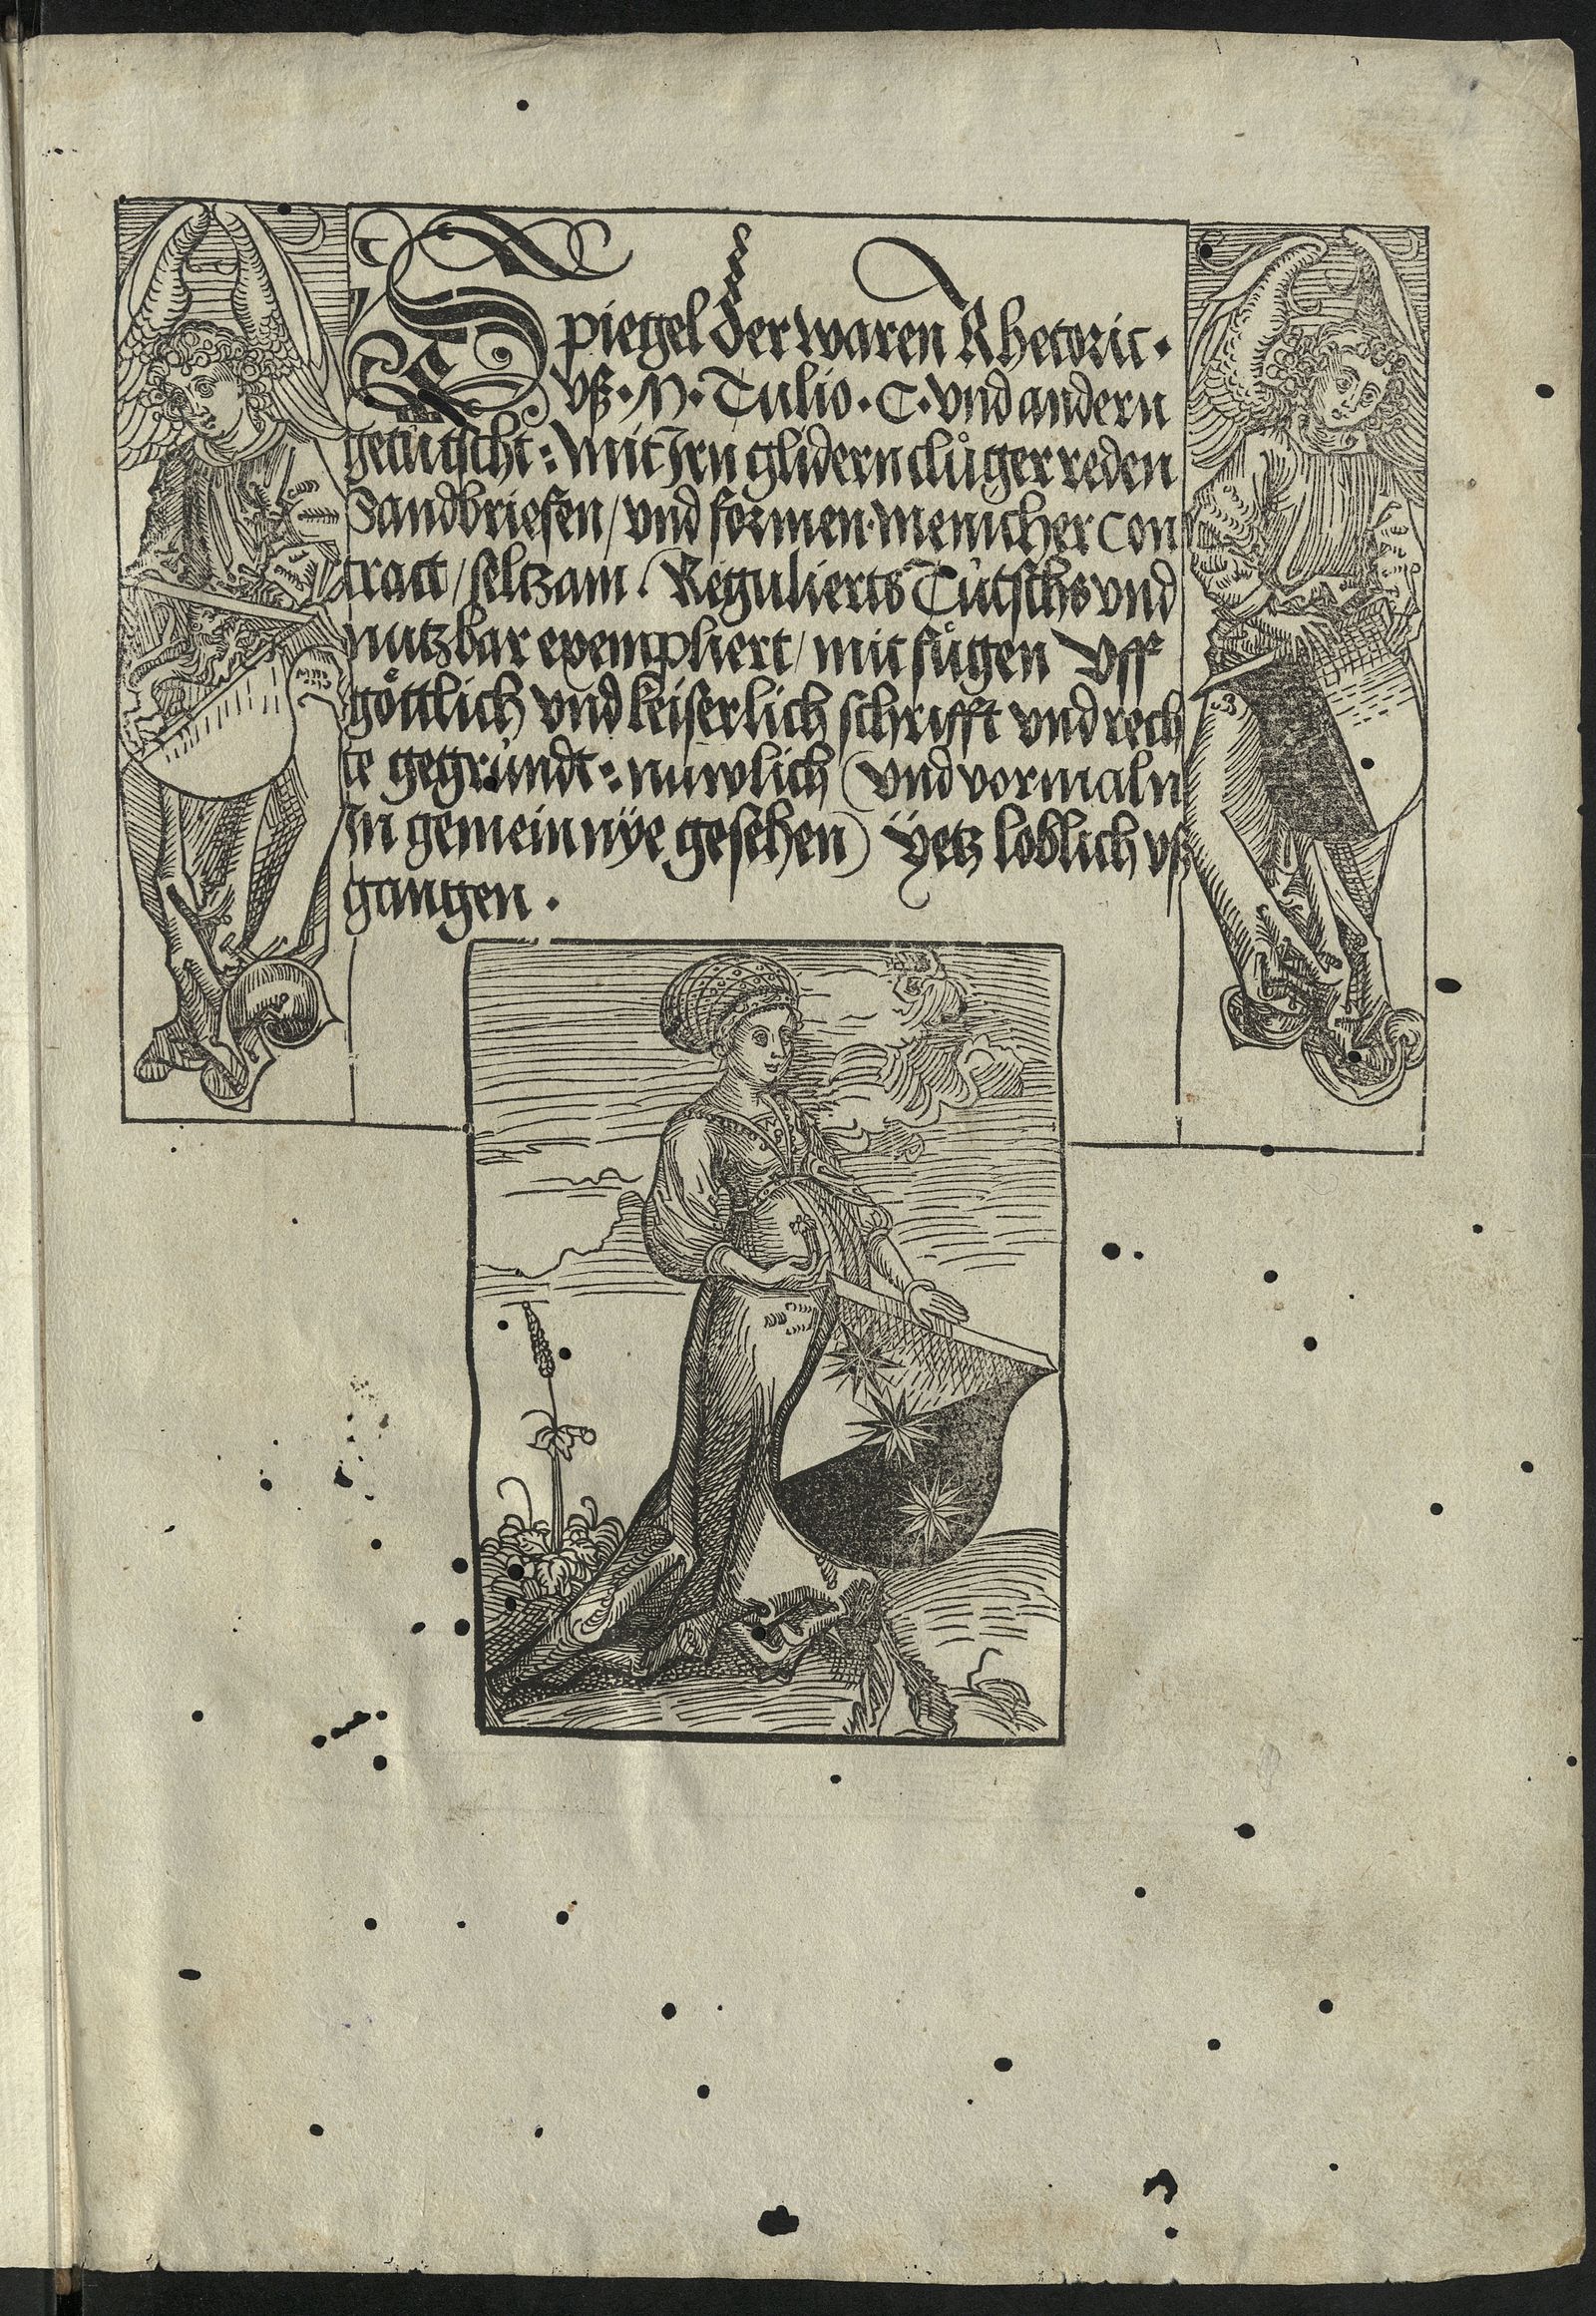 Spiegel der waren Rhetoric.
vß. M. Tulio. C. vnd andern
getütscht: Mit Irn glidern clůger reden
Sandbriefen/ vnd formen. menicher con
tract/ seltzam. Regulierts Tütschs vnd
nutzbar exempliert/ mit fůgen vff
göttlich vnd keiserlich schrifft vnd rech
te gegründt: nüwlich (vnd vormaln
In gemein nÿe gesehen) ÿetz loblich vß
gangen.